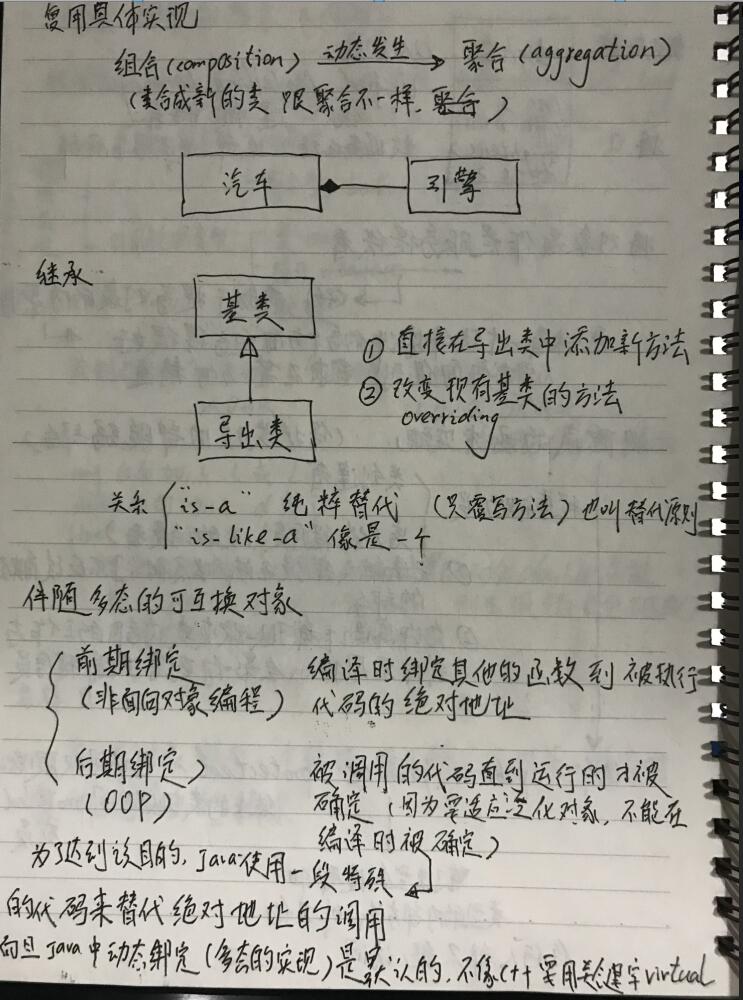 复用具体实现
组合(composition) 动态发生 聚合(aggregation)
(类合成新的类 跟聚合不一样,聚合)
汽车 引擎
继承
基类
① 直接在导出类中添加新方法
② 改变现有基类的方法
overriding
导出类
关系 "is-a" 纯粹替代 (只覆写方法) 也叫替代原则
"is-like-a" 像是一个
伴随多态的可互换对象
前期绑定 编译时绑定其他的函数到被执行
(非面向对象编程) 代码的绝对地址
后期绑定) 被调用的代码直到运行时才被
(OOP) 确定(因为要适应变化对象,不能在
编译时被确定)
为了达到该目的,Java使用一段特殊
的代码来替代绝对地址的调用
而且Java中动态绑定(多态的实现)是默认的,不像C++要用关键字virtual